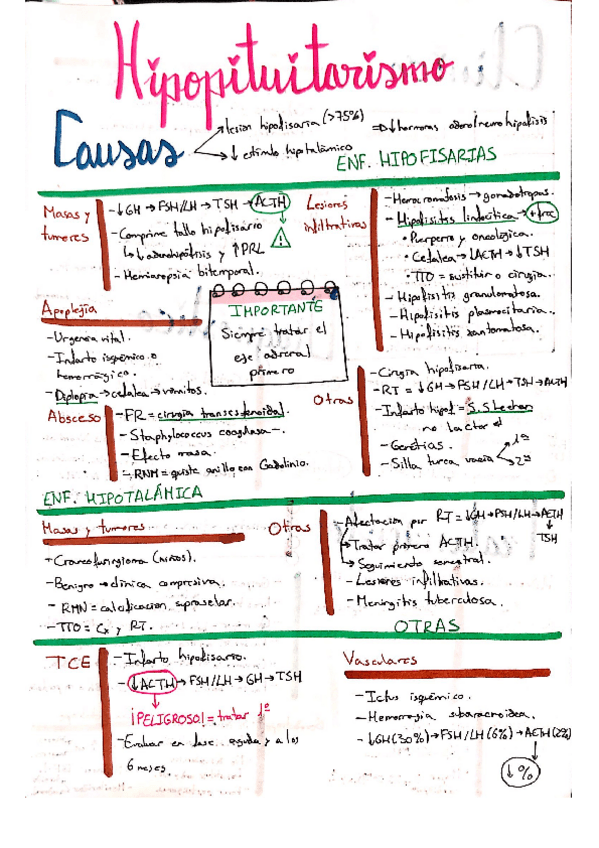 Hipopituitarismo
Causas
lesión hipofisaria (>75%)
↓ estimulo hipotalámico
=> ↓ hormonas adeno/neurohipófisis
ENF. HIPOFISARIAS
Masas y tumores
- ↓GH → FSH/LH → TSH → ACTH
- Comprime tallo hipofisario
↳ ↓ adenohipófisis y ↑PRL
- Hemianopsia bitemporal.
Lesiones infiltrativas
- Hemocromatosis → gonadotropas.
- Hipofisitis linfocítica → + frec
• Puerpera y oncológica.
• Cefalea → ↓ACTH → ↓TSH
• TTO = sustituir o cirugía.
- Hipofisitis granulomatosa.
- Hipofisitis plasmocitaria.
- Hipofisitis xantomatosa.
Apoplejía
- Urgencia vital.
- Infarto isquémico o
hemorrágico.
- Diplopia → cefalea → vómitos.
IMPORTANTE
Siempre tratar el
eje adrenal
primero
Absceso
- FR = cirugía transesfenoidal.
- Staphylococcus coagulasa -.
- Efecto masa.
- RNM = quiste anillo con Gadolinio.
Otras
- Cirugía hipofisaria.
- RT = ↓GH → FSH/LH → TSH → ACTH
- Infarto hipof. = S. Sheehan
no lactar
- Genéticas.
- Silla turca vacía
1ª
2ª
ENF. HIPOTALÁMICA
Masas y tumores
- Craneofaringioma (niños).
- Benigno → clínica compresiva.
- RMN = calcificación supraselar.
- TTO = Cx y RT.
Otras
- Afectación por RT = ↓GH → FSH/LH → ACTH
↓
TSH
↳ Tratar primero ACTH.
↳ Seguimiento semestral.
- Lesiones infiltrativas.
- Meningitis tuberculosa.
OTRAS
TCE
- Infarto hipofisario.
- ↓ACTH → FSH/LH → GH → TSH
¡PELIGROSO! = tratar 1º
- Evaluar en fase aguda y a los
6 meses.
Vasculares
- Ictus isquémico.
- Hemorragia subaracnoidea.
- ↓GH (30%) → FSH/LH (6%) → ACTH (2%)
↓%